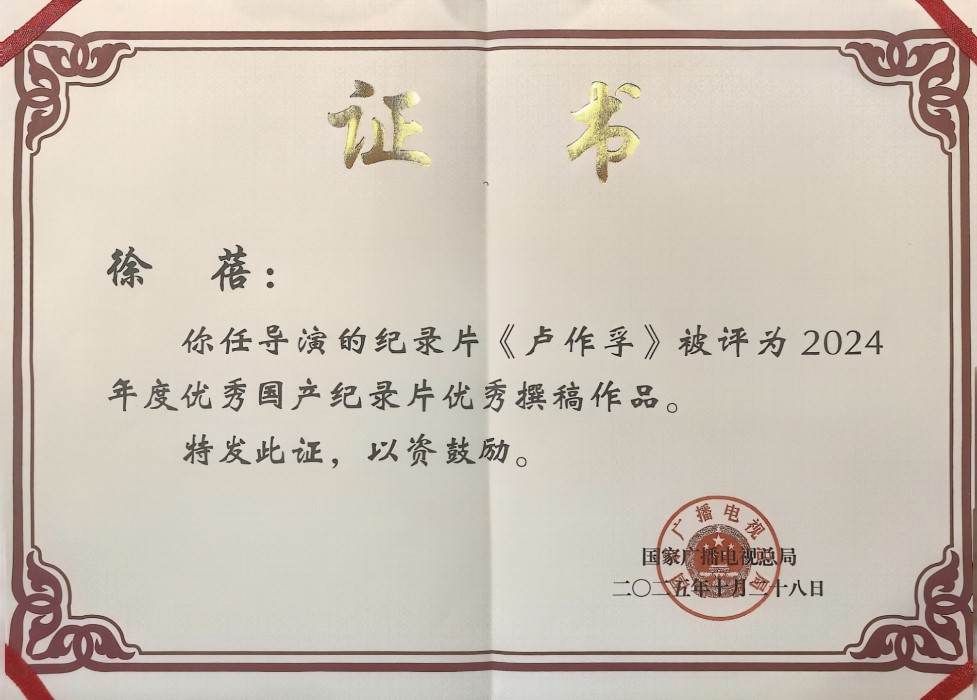 证 书
徐 蓓：
你任导演的纪录片《卢作孚》被评为 2024
年度优秀国产纪录片优秀撰稿作品。
特发此证，以资鼓励。
国家广播电视总局
国家广播电视总局
二〇二五年十月二十八日